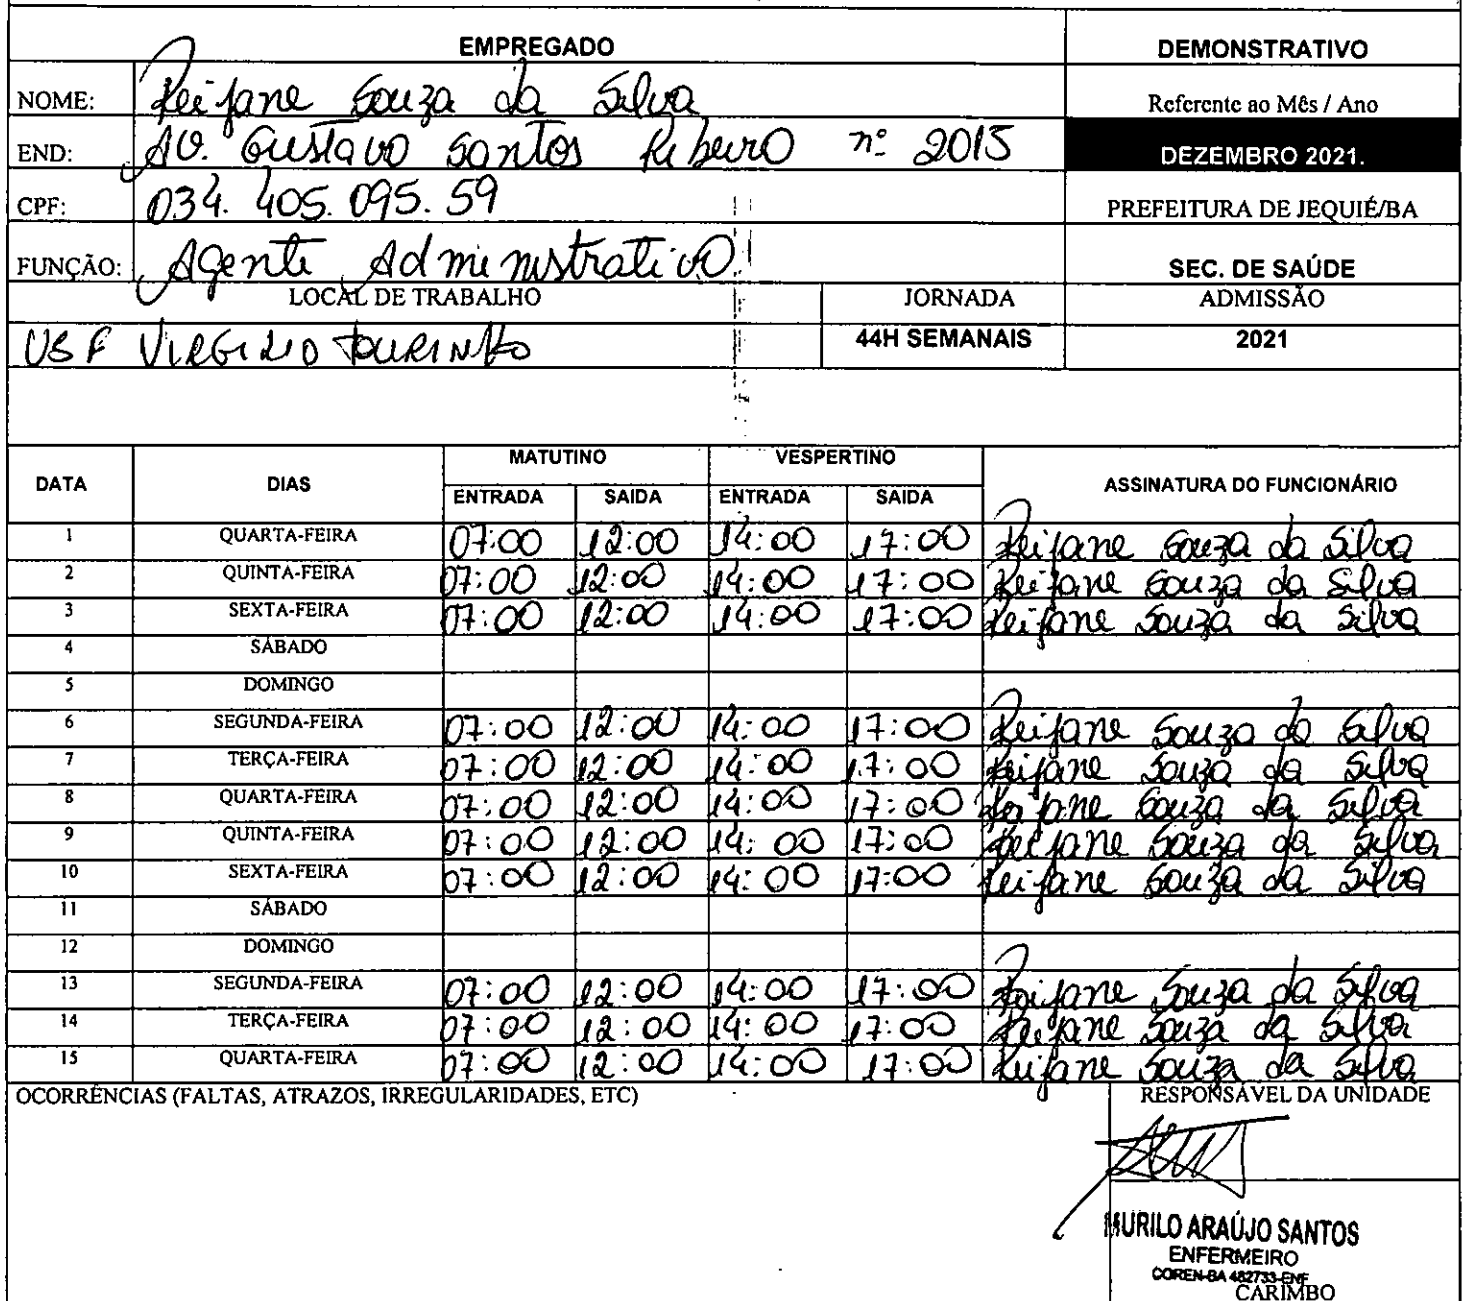 EMPREGADO DEMONSTRATIVO
NOME: Reijane Souza da Silva Referente ao Mês / Ano
END: AV. Gustavo Santos Ribeiro nº 2015 DEZEMBRO 2021.
CPF: 034. 405. 095. 59 PREFEITURA DE JEQUIÉ/BA
FUNÇÃO: Agente Administrativo SEC. DE SAÚDE
LOCAL DE TRABALHO JORNADA ADMISSÃO
USF VIRGILIO TOURINHO 44H SEMANAIS 2021
MATUTINO VESPERTINO
DATA DIAS ASSINATURA DO FUNCIONÁRIO
ENTRADA SAIDA ENTRADA SAIDA
1 QUARTA-FEIRA 07:00 12:00 14:00 17:00 Reijane Souza da Silva
2 QUINTA-FEIRA 07:00 12:00 14:00 17:00 Reijane Souza da Silva
3 SEXTA-FEIRA 07:00 12:00 14:00 17:00 Reijane Souza da Silva
4 SÁBADO
5 DOMINGO
6 SEGUNDA-FEIRA 07:00 12:00 14:00 17:00 Reijane Souza da Silva
7 TERÇA-FEIRA 07:00 12:00 14:00 17:00 Reijane Souza da Silva
8 QUARTA-FEIRA 07:00 12:00 14:00 17:00 Reijane Souza da Silva
9 QUINTA-FEIRA 07:00 12:00 14:00 17:00 Reijane Souza da Silva
10 SEXTA-FEIRA 07:00 12:00 14:00 17:00 Reijane Souza da Silva
11 SÁBADO
12 DOMINGO
13 SEGUNDA-FEIRA 07:00 12:00 14:00 17:00 Reijane Souza da Silva
14 TERÇA-FEIRA 07:00 12:00 14:00 17:00 Reijane Souza da Silva
15 QUARTA-FEIRA 07:00 12:00 14:00 17:00 Reijane Souza da Silva
OCORRÊNCIAS (FALTAS, ATRAZOS, IRREGULARIDADES, ETC) RESPONSÁVEL DA UNIDADE
MURILO ARAÚJO SANTOS
ENFERMEIRO
COREN-BA 482733-ENF
CARIMBO